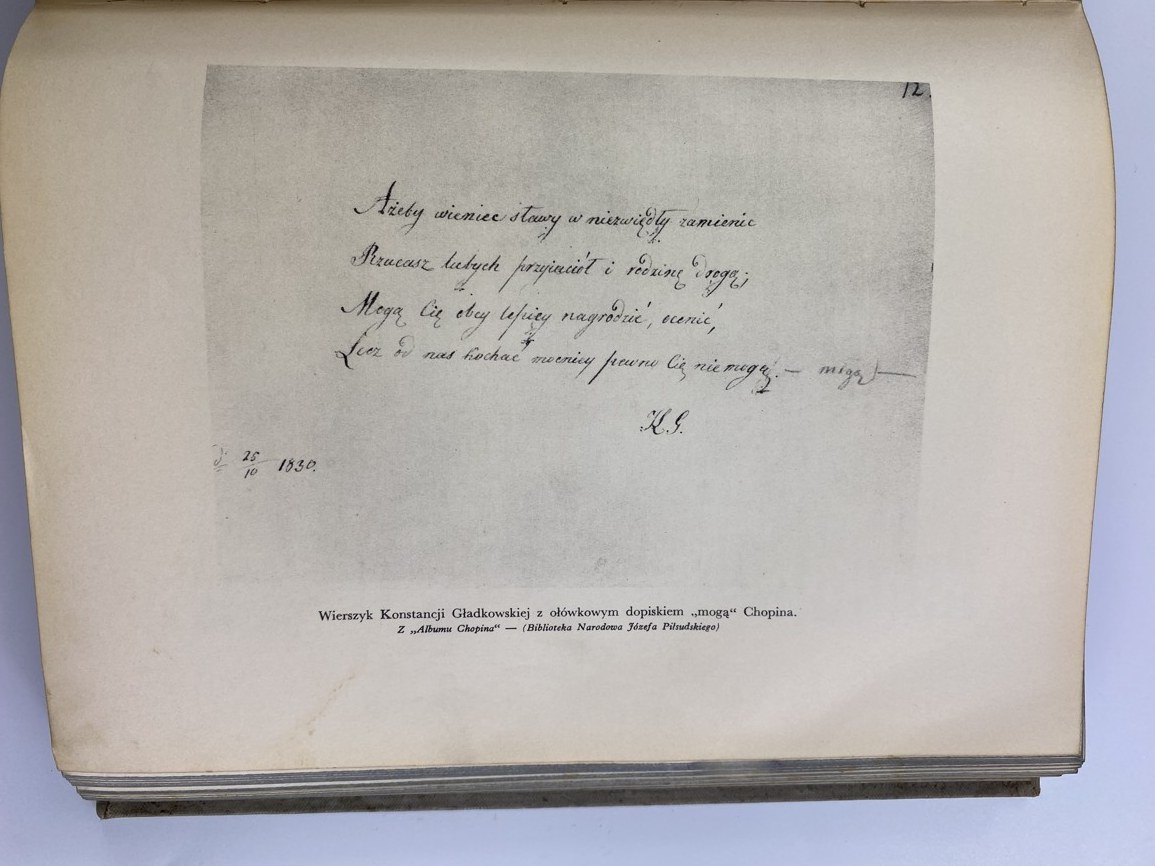 12.
Ażeby wieniec sławy w niezwiędły zamienic
Rzucasz lubych przyjaciół i rodzinę drogą;
Mogą Cię obcy lepiey nagrodzić, ocenić,
Lecz od nas kochać mocniey pewno Cię niemogą. — mogą —
K. G.
25/10 1830.
Wierszyk Konstancji Gładkowskiej z ołówkowym dopiskiem „mogą“ Chopina.
Z „Albumu Chopina“ — (Biblioteka Narodowa Józefa Piłsudskiego)